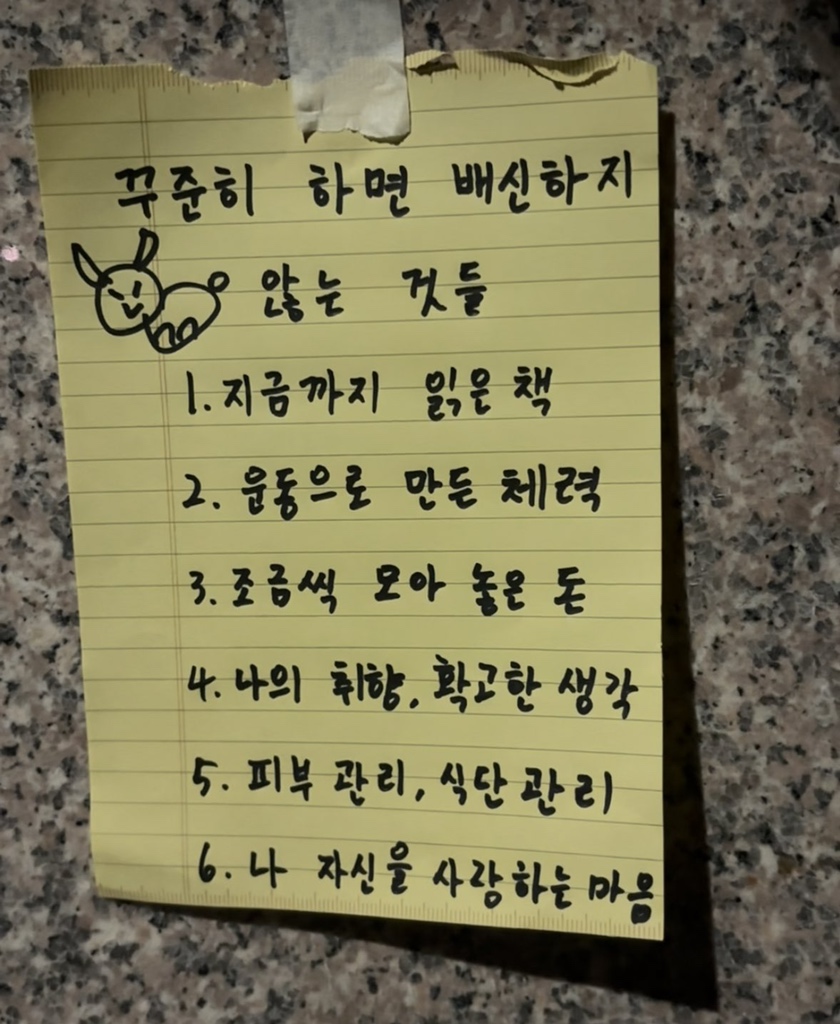 꾸준히 하면 배신하지
않는 것들
1. 지금까지 읽은 책
2. 운동으로 만든 체력
3. 조금씩 모아 놓은 돈
4. 나의 취향, 확고한 생각
5. 피부 관리, 식단 관리
6. 나 자신을 사랑하는 마음